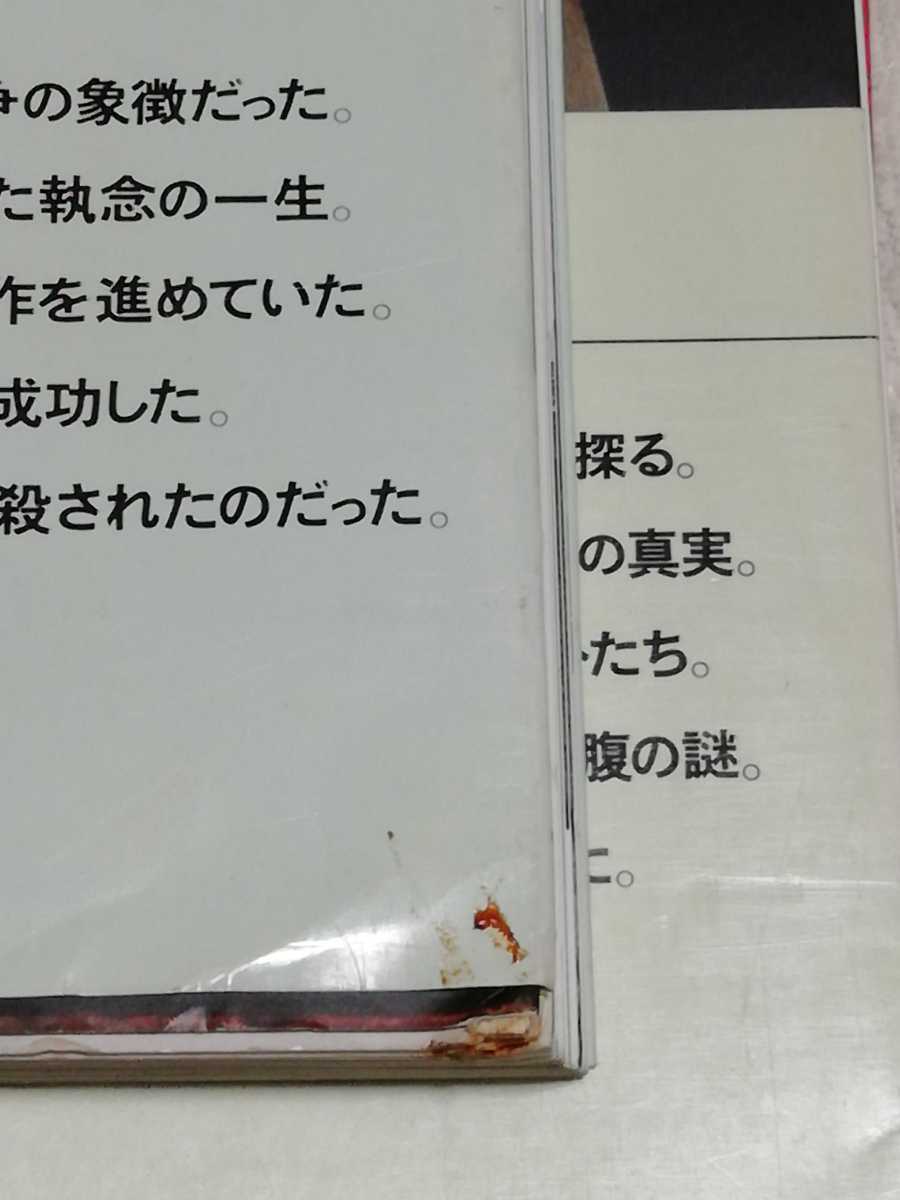 の象徴だった。
た執念の一生。
作を進めていた。
成功した。
殺されたのだった。
探る。
の真実。
たち。
腹の謎。
に。